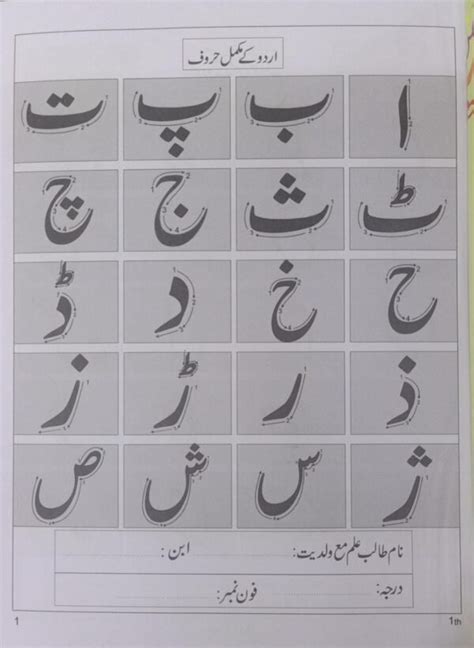 اردو کے مکمل حروف
ا ب پ ت
ٹ ث ج چ
ح خ د ڈ
ذ ر ڑ ز
ژ س ش ص
نام طالب علم مع ولدیت: ابن:
درجہ: فون نمبر:
1 1th